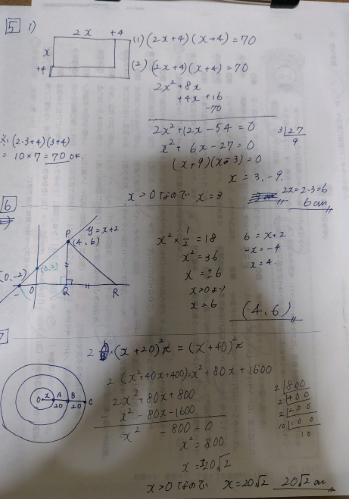 5 1)
2x +4
x
+4
(1) (2x+4)(x+4)=70
(2) (2x+4)(x+4)=70
2x²+8x
+4x+16
-70
2x²+12x-54=0
x²+6x-27=0
(x+9)(x-3)=0
x=3,-9.
3 27
9
(2・3+4)(3+4)
=10×7=70 OK
x>0なので x=3
2x=2・3=6
6cm
6
P y=x+2
(4,6)
(0,2)
(0,-2)
O Q R
x²×1/2=18
x²=36
x=±6
x>0より
x=6
6=x+2
-x=-4
x=4
(4,6)
7
2(x+20)²π=(x+40)²π
2(x²+40x+400)=x²+80x+1600
2x²+80x+800
x²-80x-1600
x²-800=0
x²=800
x=±20√2
x>0なので x=20√2 20√2cm
O x A B C
20 20
2 800
2 400
2 200
10 100
10